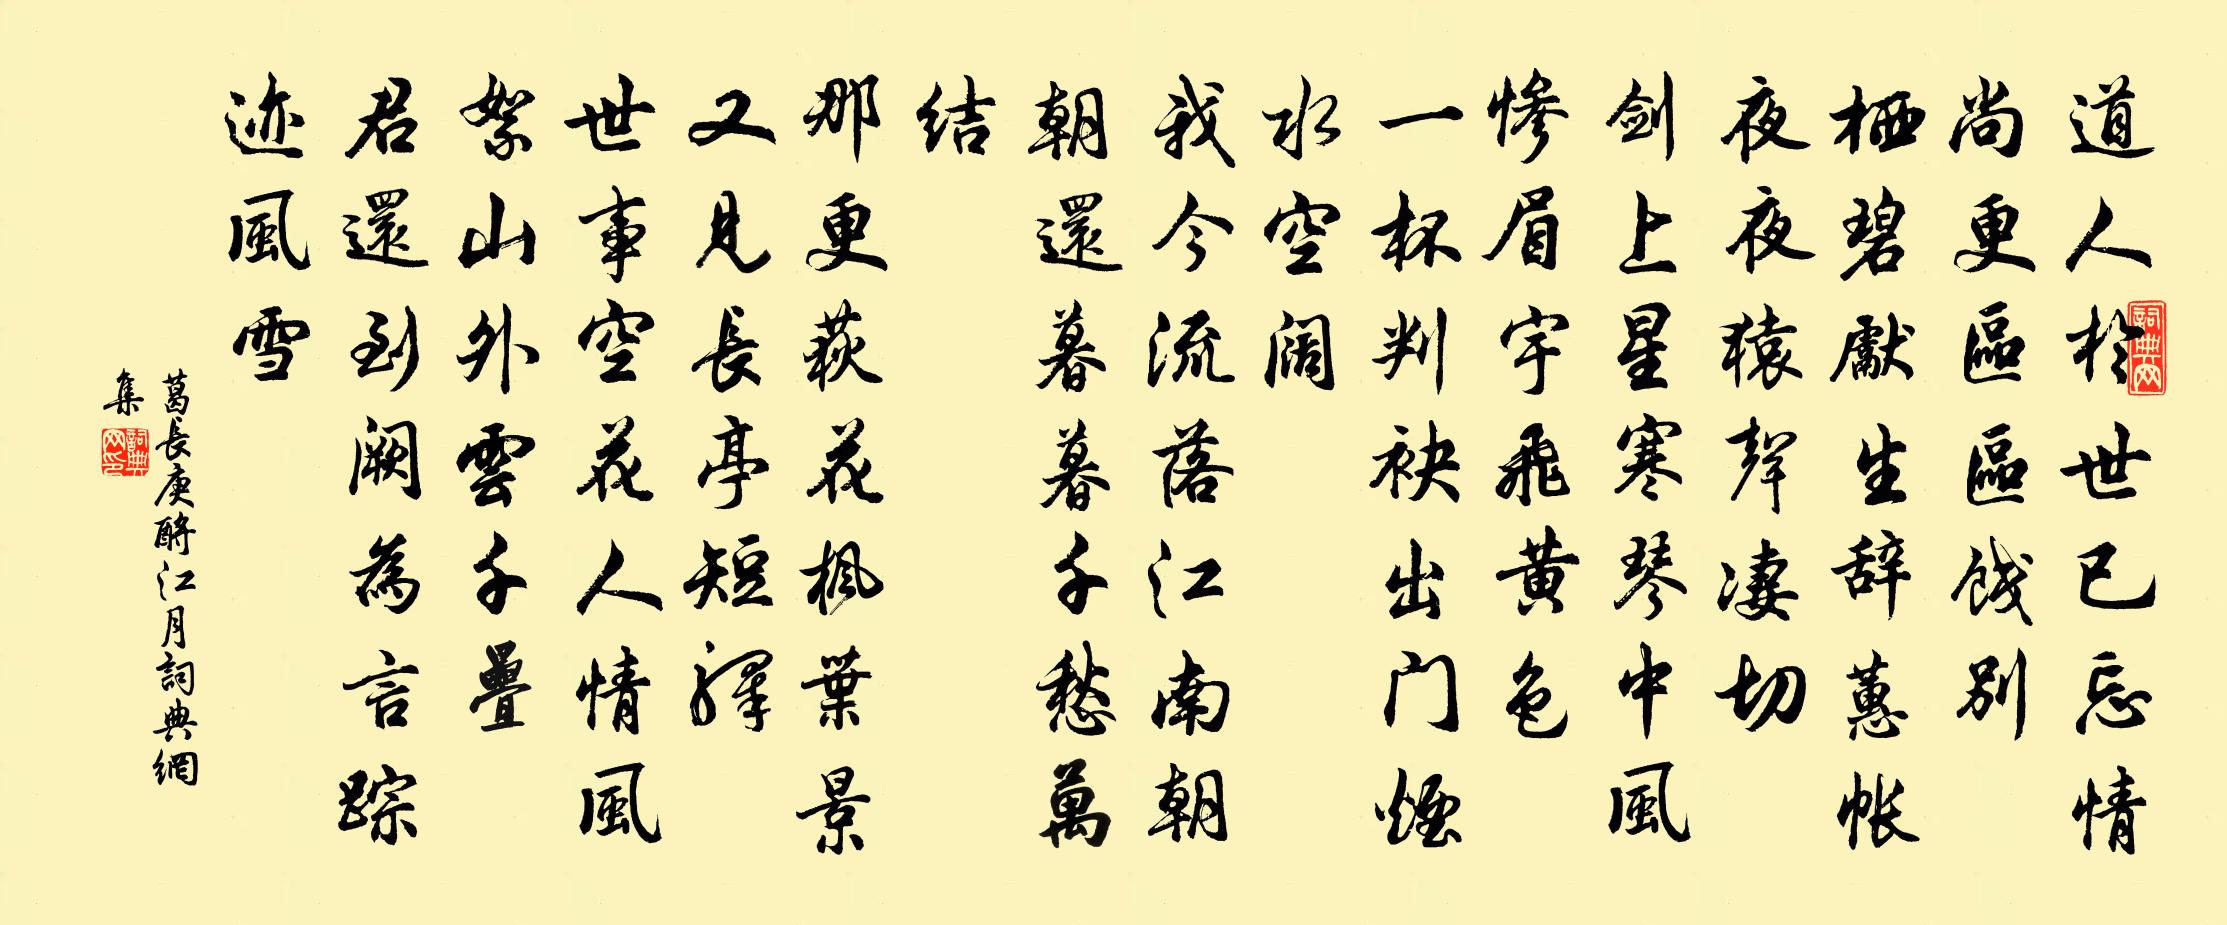 道人於世已忘情
尚更區區餞別
栖碧獻生辞蕙帐
夜夜猿聲凄切
剑上星寒琴中風
惨眉宇飛黄色
一杯判袂出门煙
水空阔
我今流落江南朝
朝還暮暮千愁萬
结
那更荻花枫葉景
又見長亭短驛
世事空花人情風
絮山外雲千疊
君還到阙為言踪
迹風雪
葛長庚酹江月詞典網
集
詞典网
詞典网印